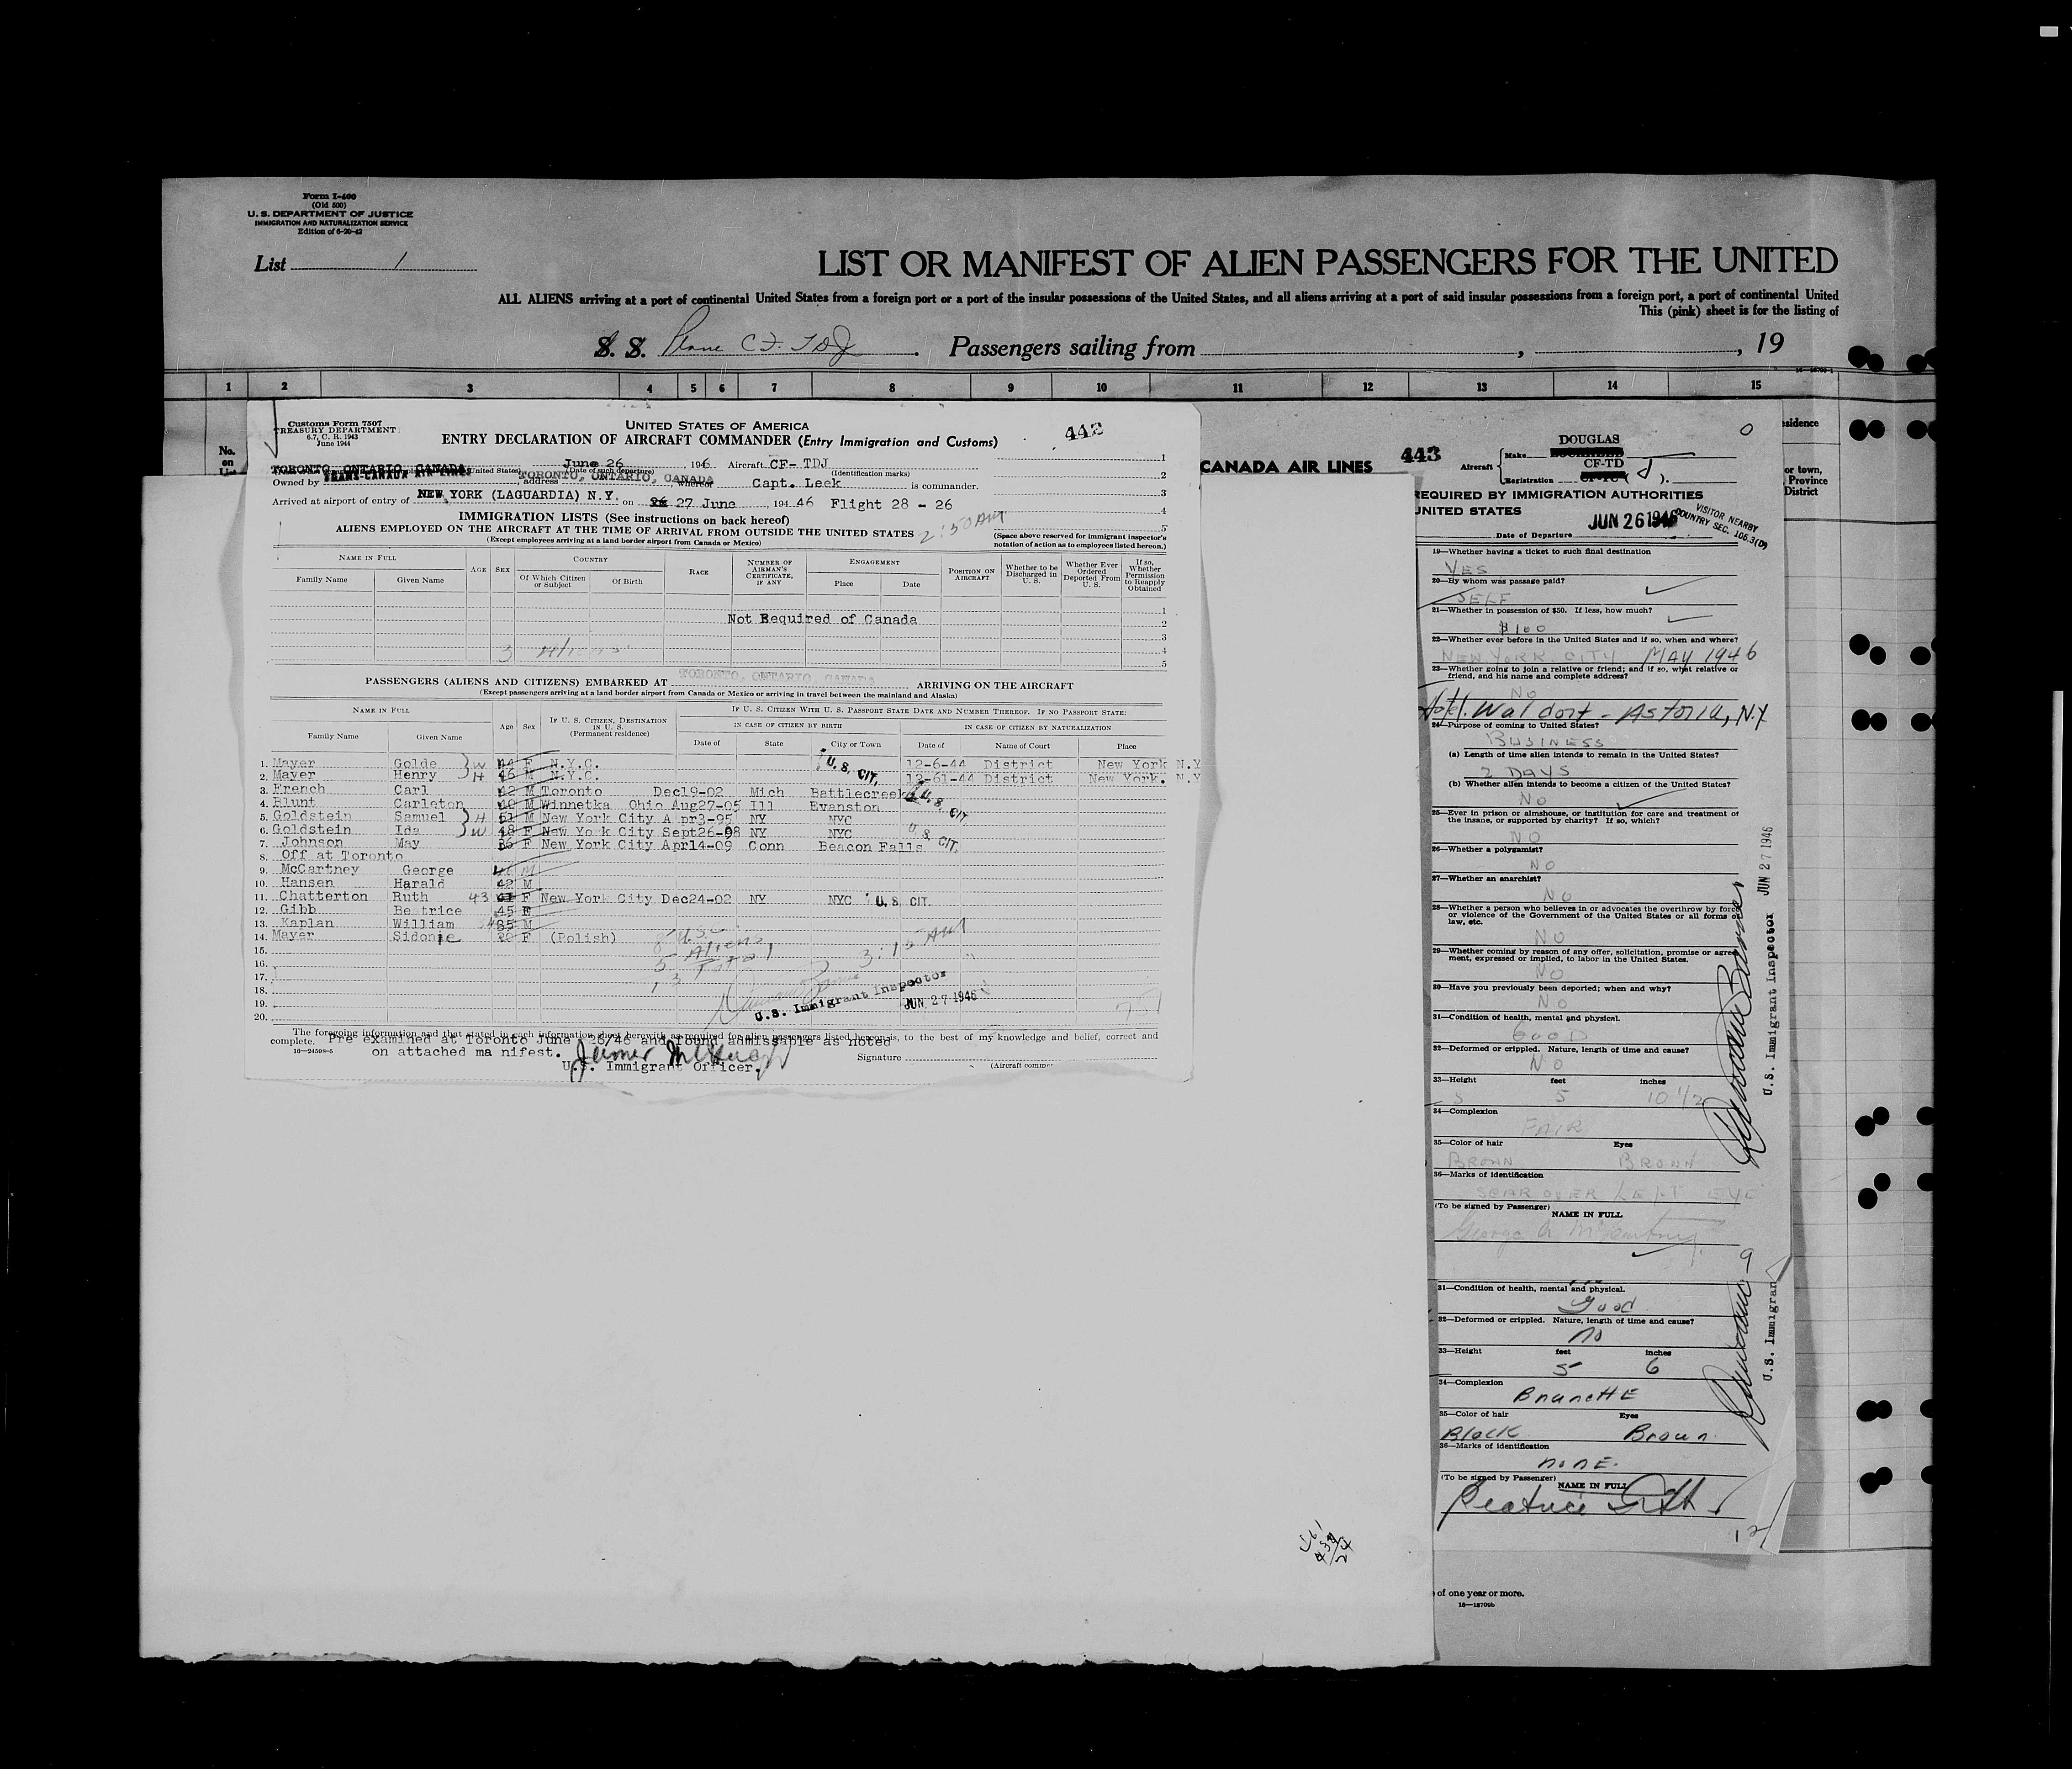 Form I-400
(Old 500)
U. S. DEPARTMENT OF JUSTICE
IMMIGRATION AND NATURALIZATION SERVICE
Edition of 6-20-42
List 1
LIST OR MANIFEST OF ALIEN PASSENGERS FOR THE UNITED
ALL ALIENS arriving at a port of continental United States from a foreign port or a port of the insular possessions of the United States, and all aliens arriving at a port of said insular possessions from a foreign port, a port of continental United
This (pink) sheet is for the listing of
S. S. Plane CF-TDJ. Passengers sailing from , , 19
1 2 3 4 5 6 7 8 9 10 11 12 13 14 15
No.
on
List
Customs Form 7507
TREASURY DEPARTMENT
6.7, C. R. 1943
June 1944
UNITED STATES OF AMERICA
ENTRY DECLARATION OF AIRCRAFT COMMANDER (Entry Immigration and Customs)
442
TORONTO, ONTARIO, CANADA June 26, 1946 Aircraft CF-TDJ
(Date of such departure) (Identification marks)
Owned by TRANS-CANADA AIR LINES, address TORONTO, ONTARIO, CANADA, whereof Capt. Leek is commander.
Arrived at airport of entry of NEW YORK (LAGUARDIA) N.Y. on 26 27 June, 194 46 Flight 28 - 26
2:50 AM
IMMIGRATION LISTS (See instructions on back hereof)
ALIENS EMPLOYED ON THE AIRCRAFT AT THE TIME OF ARRIVAL FROM OUTSIDE THE UNITED STATES
(Except employees arriving at a land border airport from Canada or Mexico)
(Space above reserved for immigrant inspector's notation of action as to employees listed hereon.)
NAME IN FULL
Family Name Given Name
AGE SEX
COUNTRY
Of Which Citizen or Subject Of Birth
RACE
NUMBER OF AIRMAN'S CERTIFICATE, IF ANY
ENGAGEMENT
Place Date
POSITION ON AIRCRAFT
Whether to be Discharged in U. S.
Whether Ever Ordered Deported From U. S.
If so, Whether Permission to Reapply Obtained
Not Required of Canada
3 Aliens
PASSENGERS (ALIENS AND CITIZENS) EMBARKED AT TORONTO, ONTARIO, CANADA ARRIVING ON THE AIRCRAFT
(Except passengers arriving at a land border airport from Canada or Mexico or arriving in travel between the mainland and Alaska)
NAME IN FULL
Family Name Given Name
Age Sex
IF U. S. CITIZEN, DESTINATION IN U. S. (Permanent residence)
IF U. S. CITIZEN WITH U. S. PASSPORT STATE DATE AND NUMBER THEREOF. IF NO PASSPORT STATE:
IN CASE OF CITIZEN BY BIRTH IN CASE OF CITIZEN BY NATURALIZATION
Date of State City or Town Date of Name of Court Place
1. Mayer Golde W 44 F N.Y.C. U. S. CIT. 12-6-44 District New York N.Y
2. Mayer Henry H 46 M N.Y.C. 12-61-44 District New York. N.Y
3. French Carl 42 M Toronto Dec19-02 Mich Battlecreek U. S. CIT.
4. Blunt Carleton 40 M Winnetka Ohio Aug27-05 Ill Evanston
5. Goldstein Samuel H 51 M New York City Apr3-95 NY NYC
6. Goldstein Ida W 48 F New York City Sept26-98 NY NYC U. S. CIT.
7. Johnson May 36 F New York City Apr14-09 Conn Beacon Falls
8. Off at Toronto
9. McCartney George 46 M
10. Hansen Harald 42 M
11. Chatterton Ruth 43 41 F New York City Dec24-02 NY NYC U. S. CIT.
12. Gibb Beatrice 45 F
13. Kaplan William 35 M
14. Mayer Sidonie 20 F (Polish)
15.
16.
17.
18.
19.
20.
8 U.S.C.
5 Aliens
13 Total
3:15 AM
U.S. Immigrant Inspector JUN 27 1946
The foregoing information and that stated in each information sheet herewith as required for alien passengers listed hereon is, to the best of my knowledge and belief, correct and
complete. Pre examined at Toronto June 26/46 and found admissable as noted
on attached ma nifest.
16-24508-5
U.S. Immigrant Officer.
Signature
(Aircraft comm
CANADA AIR LINES 443
Aircraft Make DOUGLAS
Registration CF-TD (J).
REQUIRED BY IMMIGRATION AUTHORITIES
UNITED STATES
JUN 26 1946
VISITOR NEARBY
COUNTRY SEC. 106.3(D)
Date of Departure
19—Whether having a ticket to such final destination
YES
20—By whom was passage paid?
SELF
21—Whether in possession of $50. If less, how much?
$100
22—Whether ever before in the United States and if so, when and where?
NEW YORK CITY MAY 1946
23—Whether going to join a relative or friend; and if so, what relative or friend, and his name and complete address?
NO
Hotel Waldorf-Astoria, N.Y
24—Purpose of coming to United States?
BUSINESS
(a) Length of time alien intends to remain in the United States?
2 DAYS
(b) Whether alien intends to become a citizen of the United States?
NO
25—Ever in prison or almshouse, or institution for care and treatment of the insane, or supported by charity? If so, which?
NO
26—Whether a polygamist?
NO
27—Whether an anarchist?
NO
28—Whether a person who believes in or advocates the overthrow by force or violence of the Government of the United States or all forms of law, etc.
NO
29—Whether coming by reason of any offer, solicitation, promise or agreement, expressed or implied, to labor in the United States.
NO
30—Have you previously been deported; when and why?
NO
31—Condition of health, mental and physical.
GOOD
32—Deformed or crippled. Nature, length of time and cause?
NO
33—Height feet inches
5 5 10 1/2
34—Complexion
FAIR
35—Color of hair Eyes
BROWN BROWN
36—Marks of identification
SCAR OVER LEFT EYE
(To be signed by Passenger)
NAME IN FULL
George A McCartney
9
31—Condition of health, mental and physical.
Good
32—Deformed or crippled. Nature, length of time and cause?
no
33—Height feet inches
5 6
34—Complexion
BrunettE
35—Color of hair Eyes
Black Brown
36—Marks of identification
nonE.
(To be signed by Passenger)
NAME IN FULL
Beatrice Gibb
12
U.S. Immigrant Inspector JUN 27 1946
U.S. Immigran
sidence
or town,
Province
District
of one year or more.
16—18709b